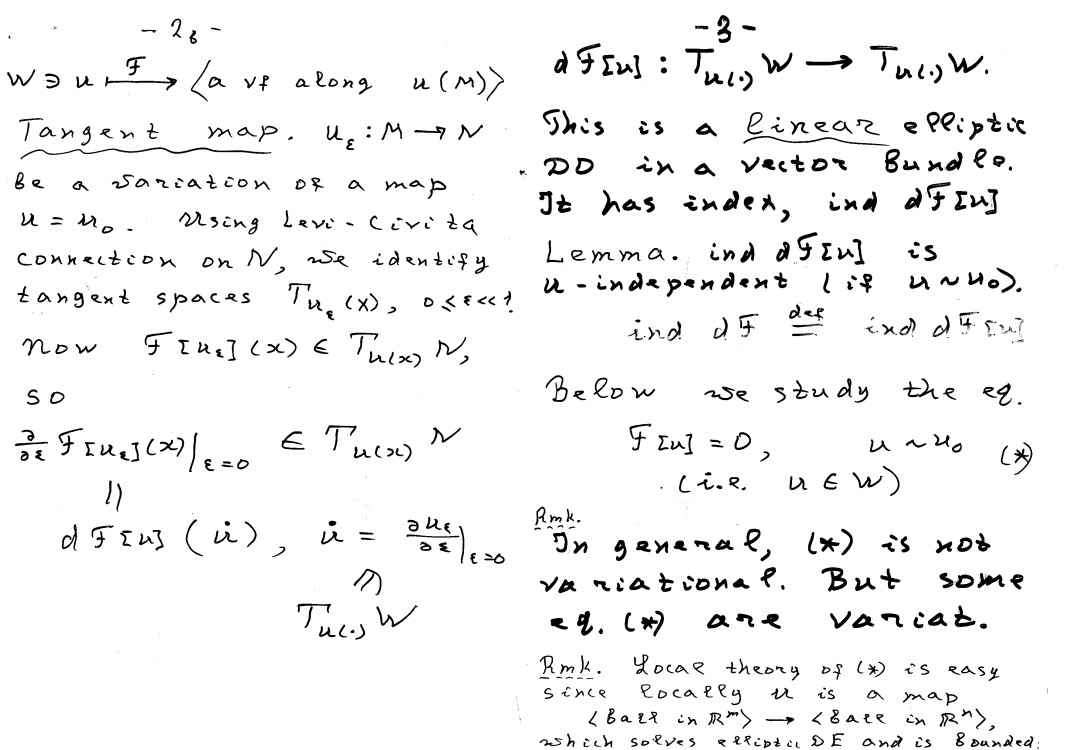 - 2b -
W ∋ u ⟼^F ⟨a vf along u(M)⟩
Tangent map. u_ε : M → N
be a variation of a map
u = u_0. Using Levi-Civita
connection on N, we identify
tangent spaces T_{u_ε}(x), 0 ≤ ε << 1.
Now F[u_ε](x) ∈ T_{u(x)} N,
so
∂/∂ε F[u_ε](x)|_{ε=0} ∈ T_{u(x)} N
||
dF[u](u̇), u̇ = ∂u_ε/∂ε|_{ε=0}
∈
T_{u(·)} W
- 3 -
dF[u] : T_{u(·)} W → T_{u(·)} W.
This is a linear elliptic
DO in a vector bundle.
It has index, ind dF[u]
Lemma. ind dF[u] is
u-independent (if u ~ u_0).
ind dF =^{def} ind dF[u]
Below we study the eq.
F[u] = 0, u ~ u_0 (*)
(i.e. u ∈ W)
Rmk.
In general, (*) is not
variational. But some
eq. (*) are variat.
Rmk. Local theory of (*) is easy
since locally u is a map
⟨Ball in ℝ^m⟩ → ⟨Ball in ℝ^n⟩,
which solves elliptic DE and is bounded: